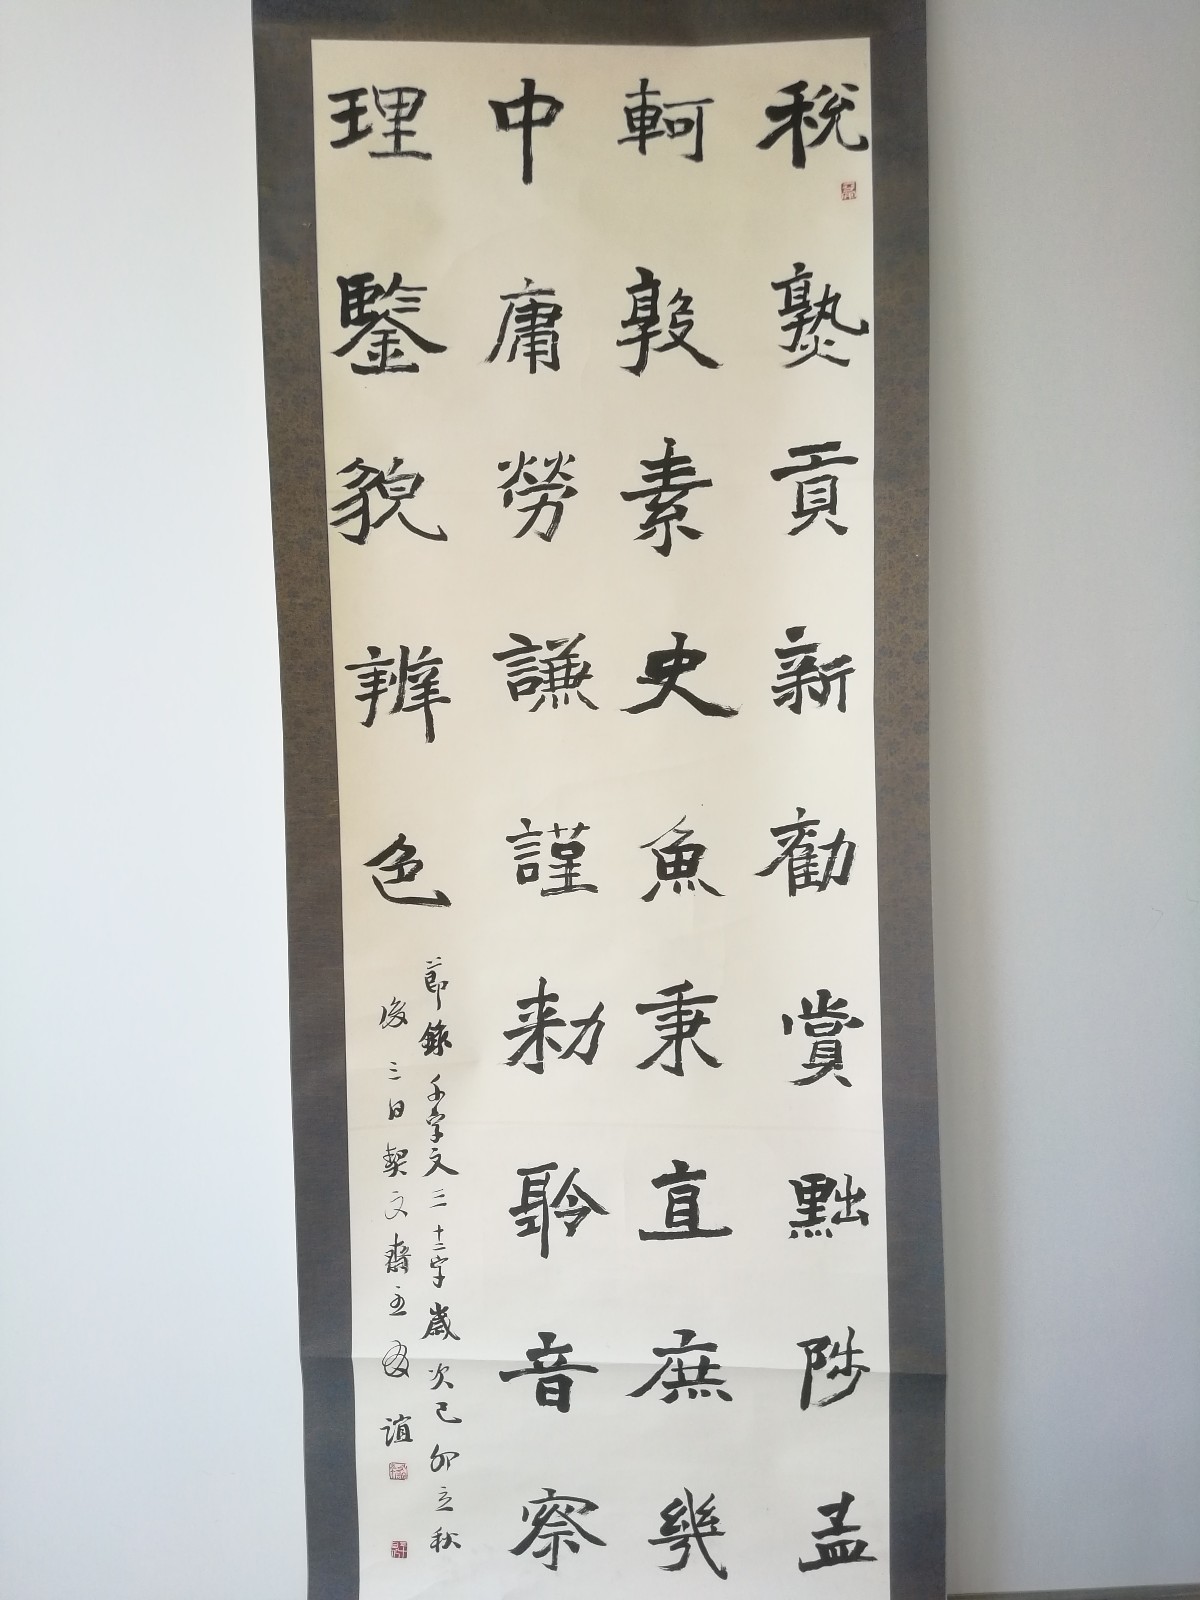 稅熟貢新勸賞黜陟孟
軻敦素史魚秉直庶幾
中庸勞謙謹勑聆音察
理鑒貌辨色
節錄千字文三十二字歲次己卯立秋
後三日契文齋主 誼